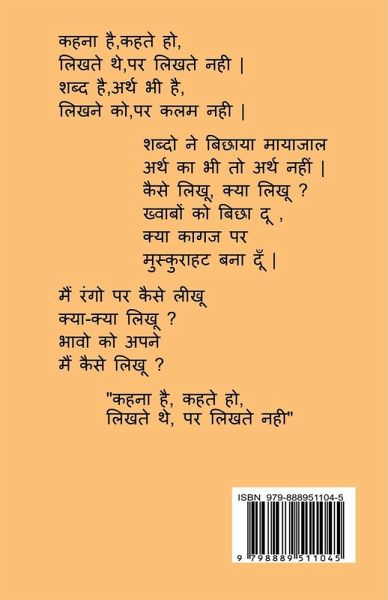 कहना है,कहते हो,
लिखते थे,पर लिखते नही |
शब्द है,अर्थ भी है,
लिखने को,पर कलम नही |
शब्दो ने बिछाया मायाजाल
अर्थ का भी तो अर्थ नहीं |
कैसे लिखू, क्या लिखू ?
ख्वाबों को बिछा दू ,
क्या कागज पर
मुस्कुराहट बना दूँ |
मैं रंगो पर कैसे लीखू
क्या-क्या लिखू ?
भावो को अपने
मैं कैसे लिखू ?
"कहना है, कहते हो,
लिखते थे, पर लिखते नही"
ISBN 979-888951104-5
9 798889 511045